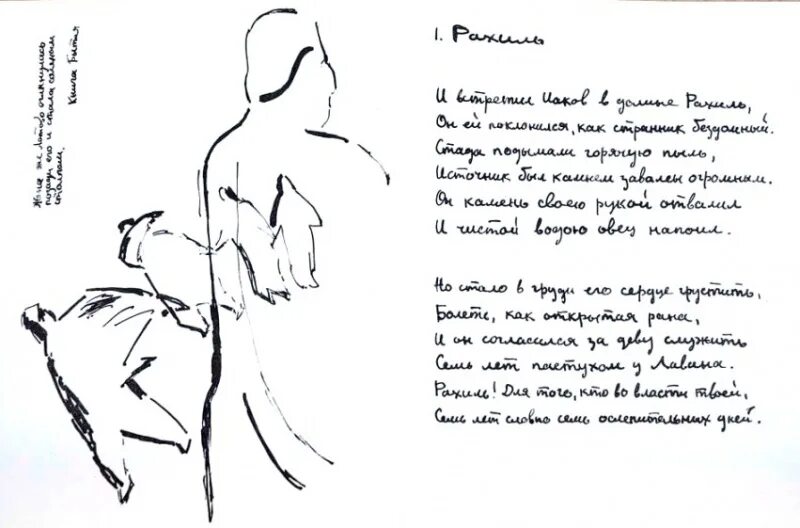 Жена же Лотова оглянулась
позади его и стала соляным
столпом.
Книга Бытия
1. Рахиль
И встретил Иаков в долине Рахиль,
Он ей поклонился, как странник бездомный.
Стада подымали горячую пыль,
Источник был камнем завален огромным.
Он камень своею рукой отвалил
И чистой водою овец напоил.
Но стало в груди его сердце грустить,
Болеть, как открытая рана,
И он согласился за деву служить
Семь лет пастухом у Лавана.
Рахиль! Для того, кто во власти твоей,
Семь лет словно семь ослепительных дней.